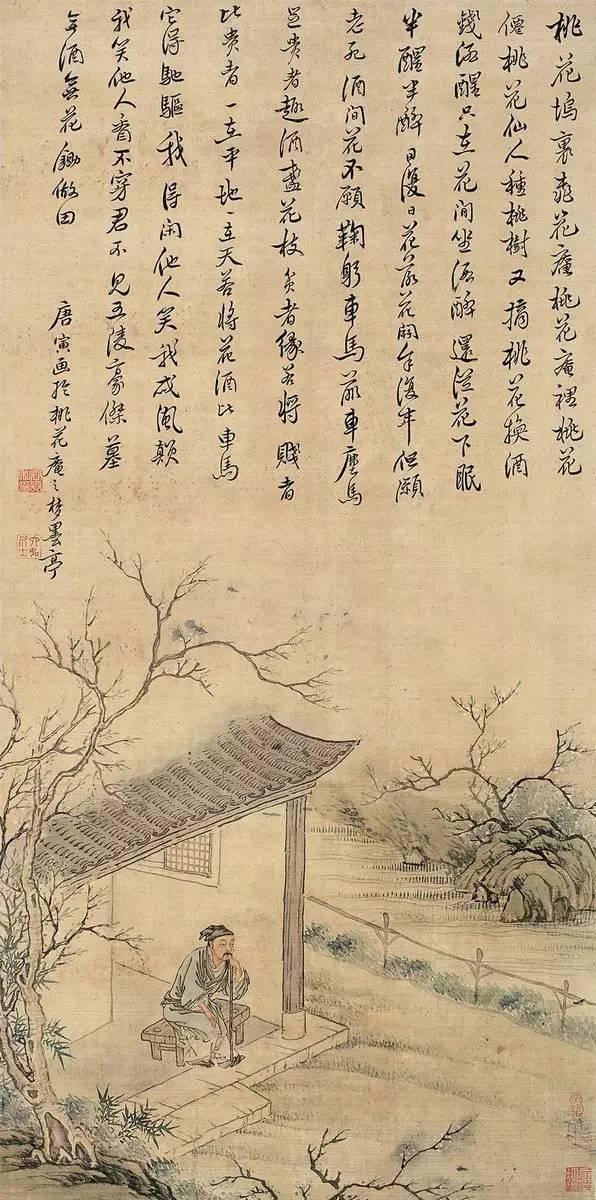 桃花塢裏桃花庵桃花庵裡桃花
僊桃花仙人種桃樹又摘桃花換酒
錢酒醒只在花間坐酒醉還從花下眠
半醒半醉日復日花落花開年復年但願
老死酒間花不願鞠躬車馬前車塵馬
足貴者趣酒盞花枝貧者緣若將賤者
比貴者一在平地一在天若將花酒比車馬
它得馳驅我得閑他人笑我忒風顛
我笑他人看不穿君不見五陵豪傑墓
無酒無花鋤做田
唐寅画於桃花庵之梦墨亭
六如居士